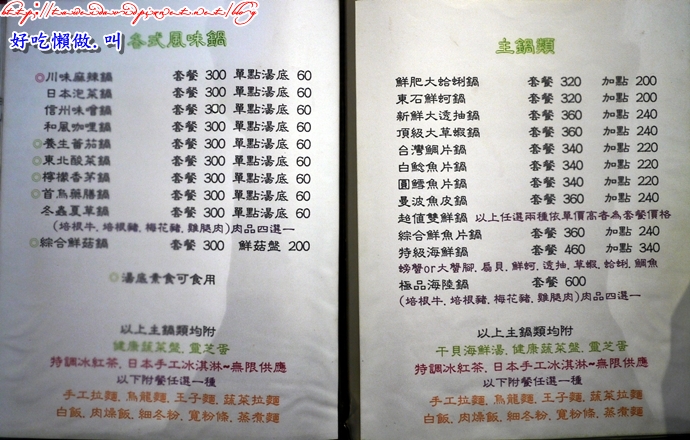 好吃懶做.叫
各式風味鍋
川味麻辣鍋 套餐 300 單點湯底 60
日本泡菜鍋 套餐 300 單點湯底 60
信州味噌鍋 套餐 300 單點湯底 60
和風咖哩鍋 套餐 300 單點湯底 60
養生蕃茄鍋 套餐 300 單點湯底 60
東北酸菜鍋 套餐 300 單點湯底 60
檸檬香茅鍋 套餐 300 單點湯底 60
首烏藥膳鍋 套餐 300 單點湯底 60
冬蟲夏草鍋 套餐 300 單點湯底 60
(培根牛,培根豬,梅花豬,雞腿肉)肉品四選一
綜合鮮菇鍋 套餐 300 鮮菇盤 200
湯底素食可食用
以上主鍋類均附
健康蔬菜盤,靈芝蛋
特調冰紅茶,日本手工冰淇淋~無限供應
以下附餐任選一種
手工拉麵,烏龍麵,王子麵,蔬菜拉麵
白飯,肉燥飯,細冬粉,寬粉條,蒸煮麵
主鍋類
鮮肥大蛤蜊鍋 套餐 320 加點 200
東石鮮蚵鍋 套餐 320 加點 200
新鮮大透抽鍋 套餐 360 加點 240
頂級大草蝦鍋 套餐 360 加點 240
台灣鯛片鍋 套餐 340 加點 220
白鯰魚片鍋 套餐 340 加點 220
圓鱈魚片鍋 套餐 340 加點 220
曼波魚皮鍋 套餐 360 加點 240
超值雙鮮鍋 以上任選兩種依單價高者為套餐價格
綜合鮮魚片鍋 套餐 360 加點 240
特級海鮮鍋 套餐 460 加點 340
螃蟹or大蟹腳,扇貝,鮮蚵,透抽,草蝦,蛤蜊,鯛魚
極品海陸鍋 套餐 600
(培根牛,培根豬,梅花豬,雞腿肉)肉品四選一
以上主鍋類均附
干貝海鮮湯,健康蔬菜盤,靈芝蛋
特調冰紅茶,日本手工冰淇淋~無限供應
以下附餐任選一種
手工拉麵,烏龍麵,王子麵,蔬菜拉麵
白飯,肉燥飯,細冬粉,寬粉條,蒸煮麵